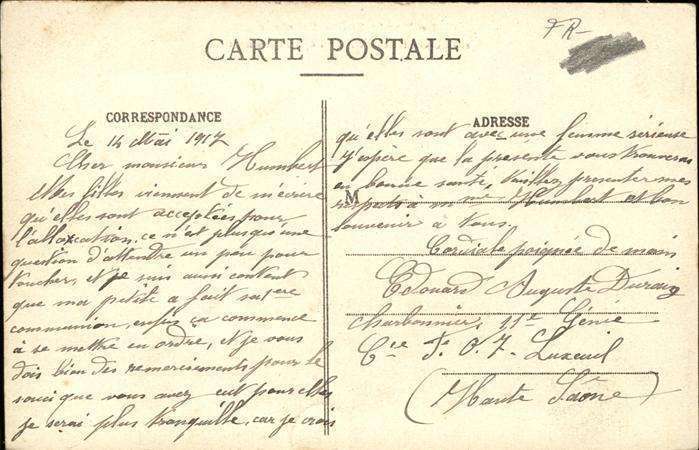 FR-
CARTE POSTALE
CORRESPONDANCE
Le 14 Mai 1917
Cher monsieur Humbert
Mes filles viennent de m'écrire
qu'elles sont acceptées pour
l'allocation, ce n'est plus qu'une
question d'attendre un peu pour
toucher, et je suis aussi content
que ma petite a fait sa 1ere
communion, enfin ça commence
à se mettre en ordre, et je vous
dois bien des remerciements pour le
souci que vous avez eut pour elles
je serai plus tranquille, car je crois
ADRESSE
qu'elles sont avec une femme sérieuse
J'espère que la présente vous trouveras
en bonne santé, Veuillez presenter mes
M
respects a Mme Humbert et bon
souvenir à Vous.
Cordiale poignée de main
Edouard Auguste
charbonnier 11e Génie
Cie Luxeuil
(Haute Saône)